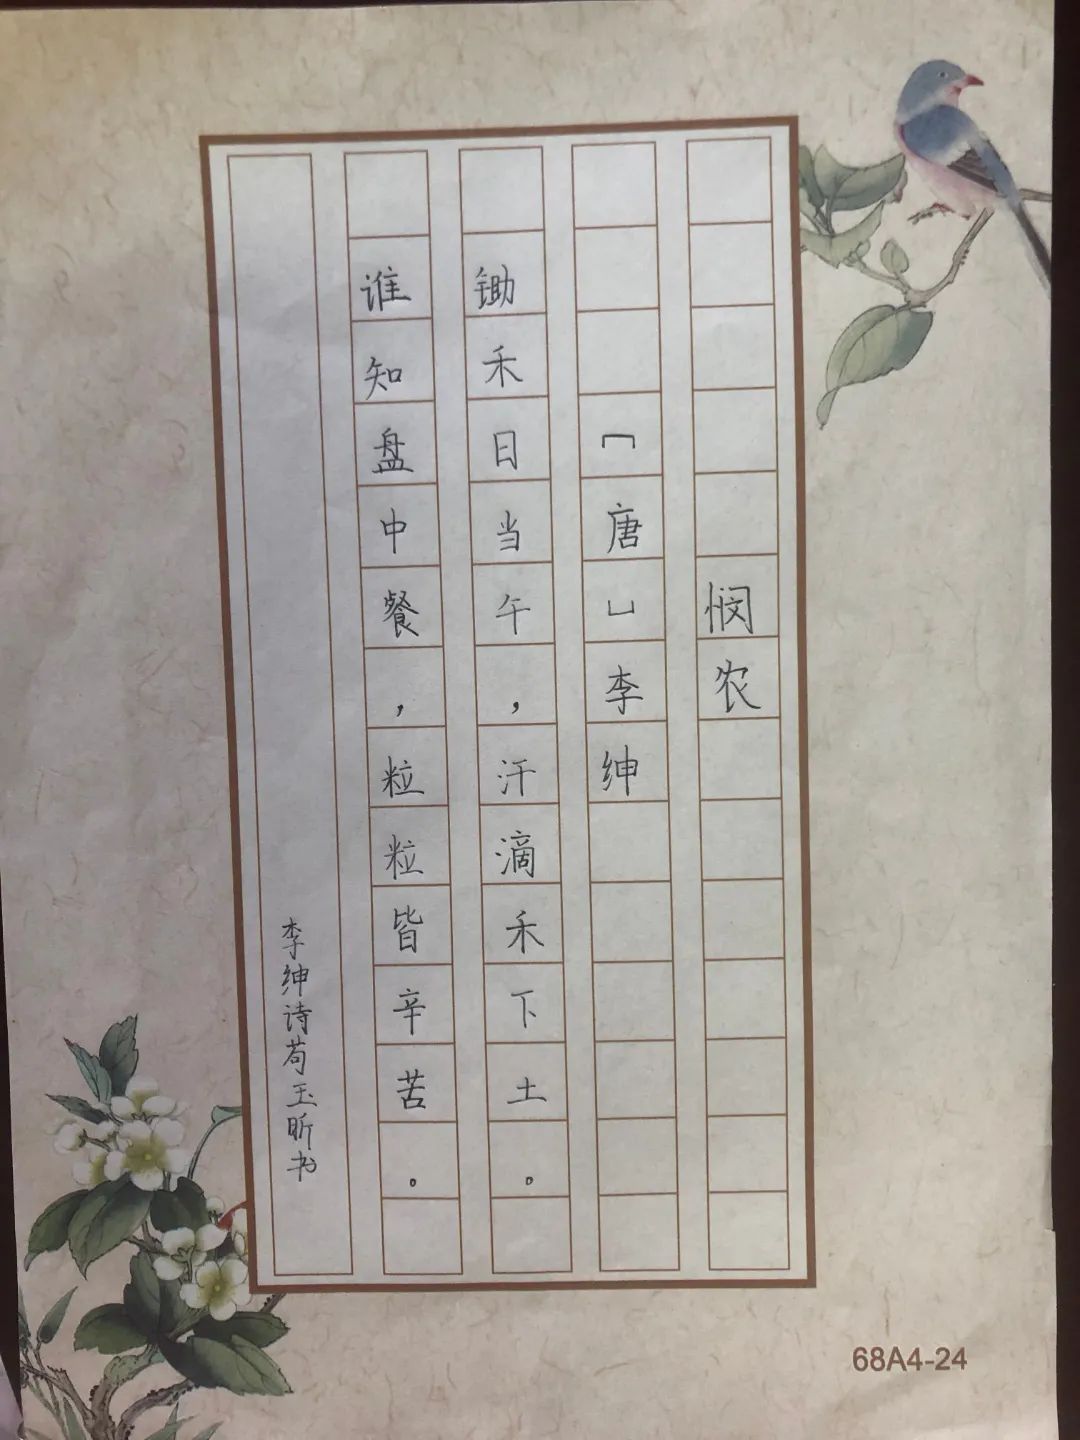 悯农
﹇唐﹈李绅
锄禾日当午，汗滴禾下土。
谁知盘中餐，粒粒皆辛苦。
李绅诗苟玉昕书
68A4-24